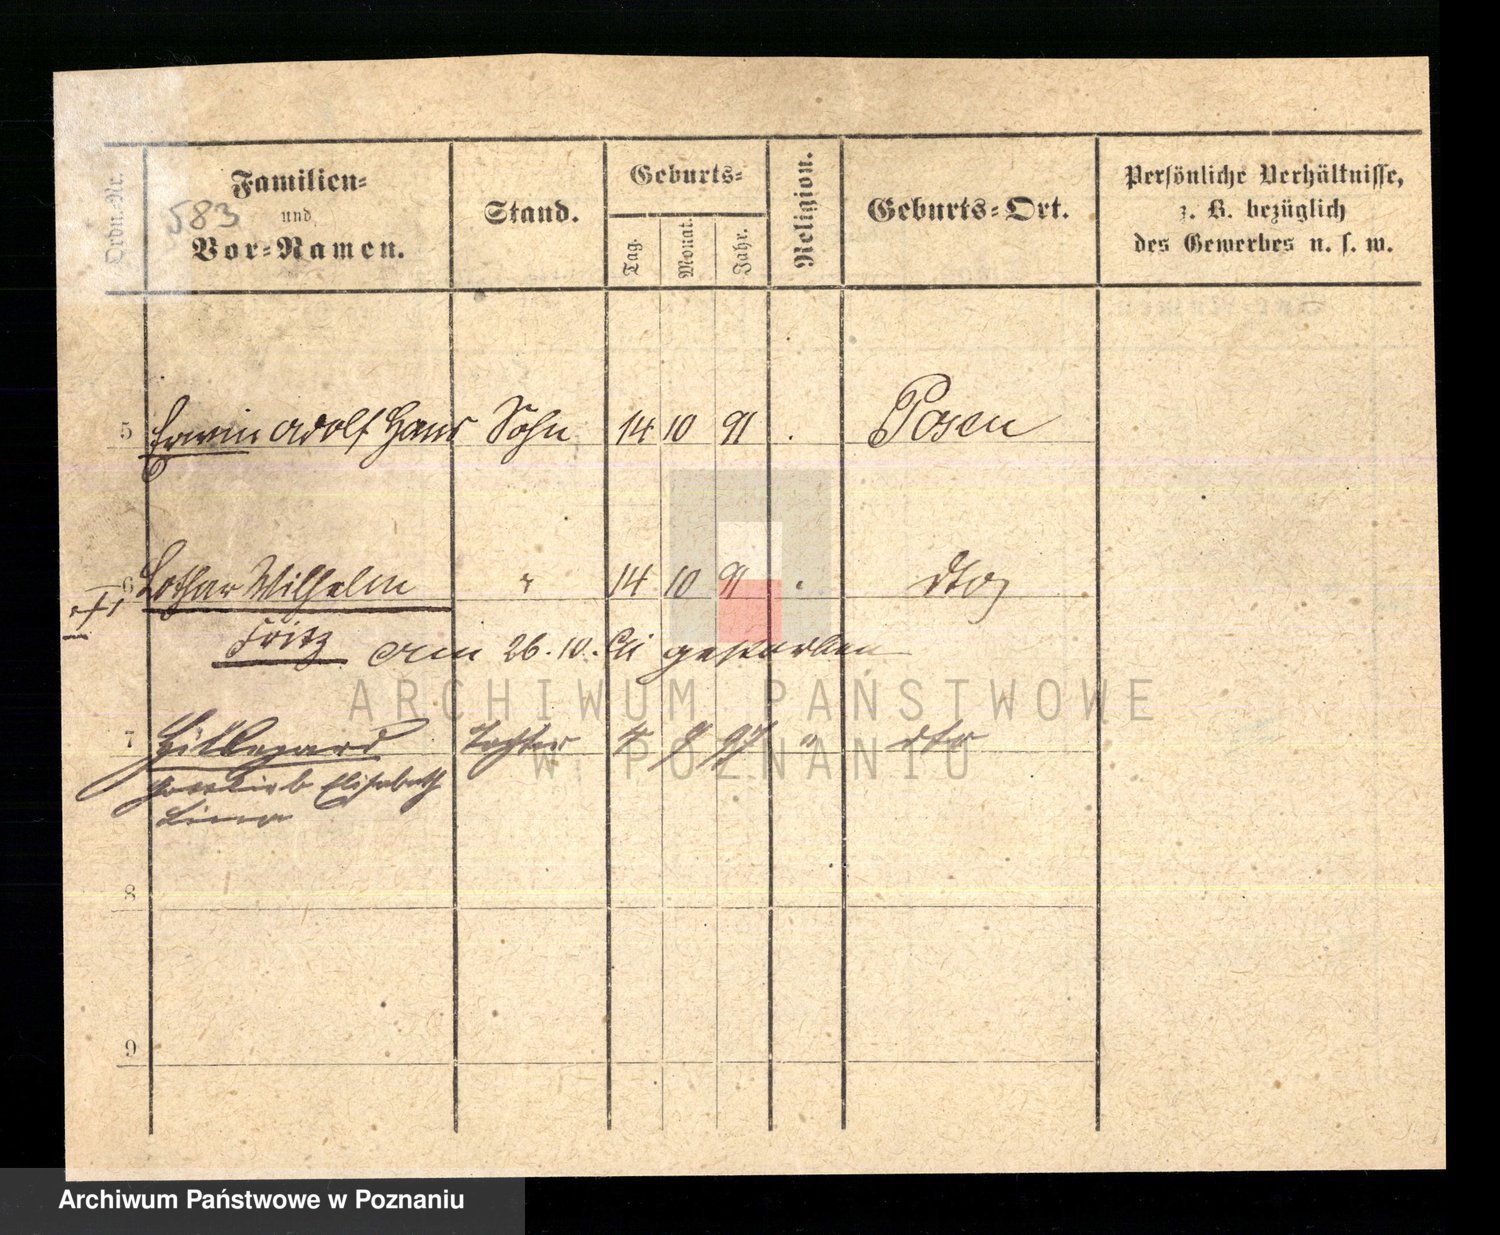 Ordn.-Nr.
583
Familien-
und
Vor-Namen.
Stand.
Geburts-
Tag.
Monat.
Jahr.
Religion.
Geburts-Ort.
Persönliche Verhältnisse,
z. B. bezüglich
des Gewerbes u. s. w.
5 Erwin Adolf Hans Sohn 14 10 91 Posen
6 Lothar Wilhelm " 14 10 91 " dto
Fritz am 26. 10. gestorben
7 Hildegard Tochter 97 " dto
Elisabeth
8
9
ARCHIWUM PAŃSTWOWE
W POZNANIU
Archiwum Państwowe w Poznaniu